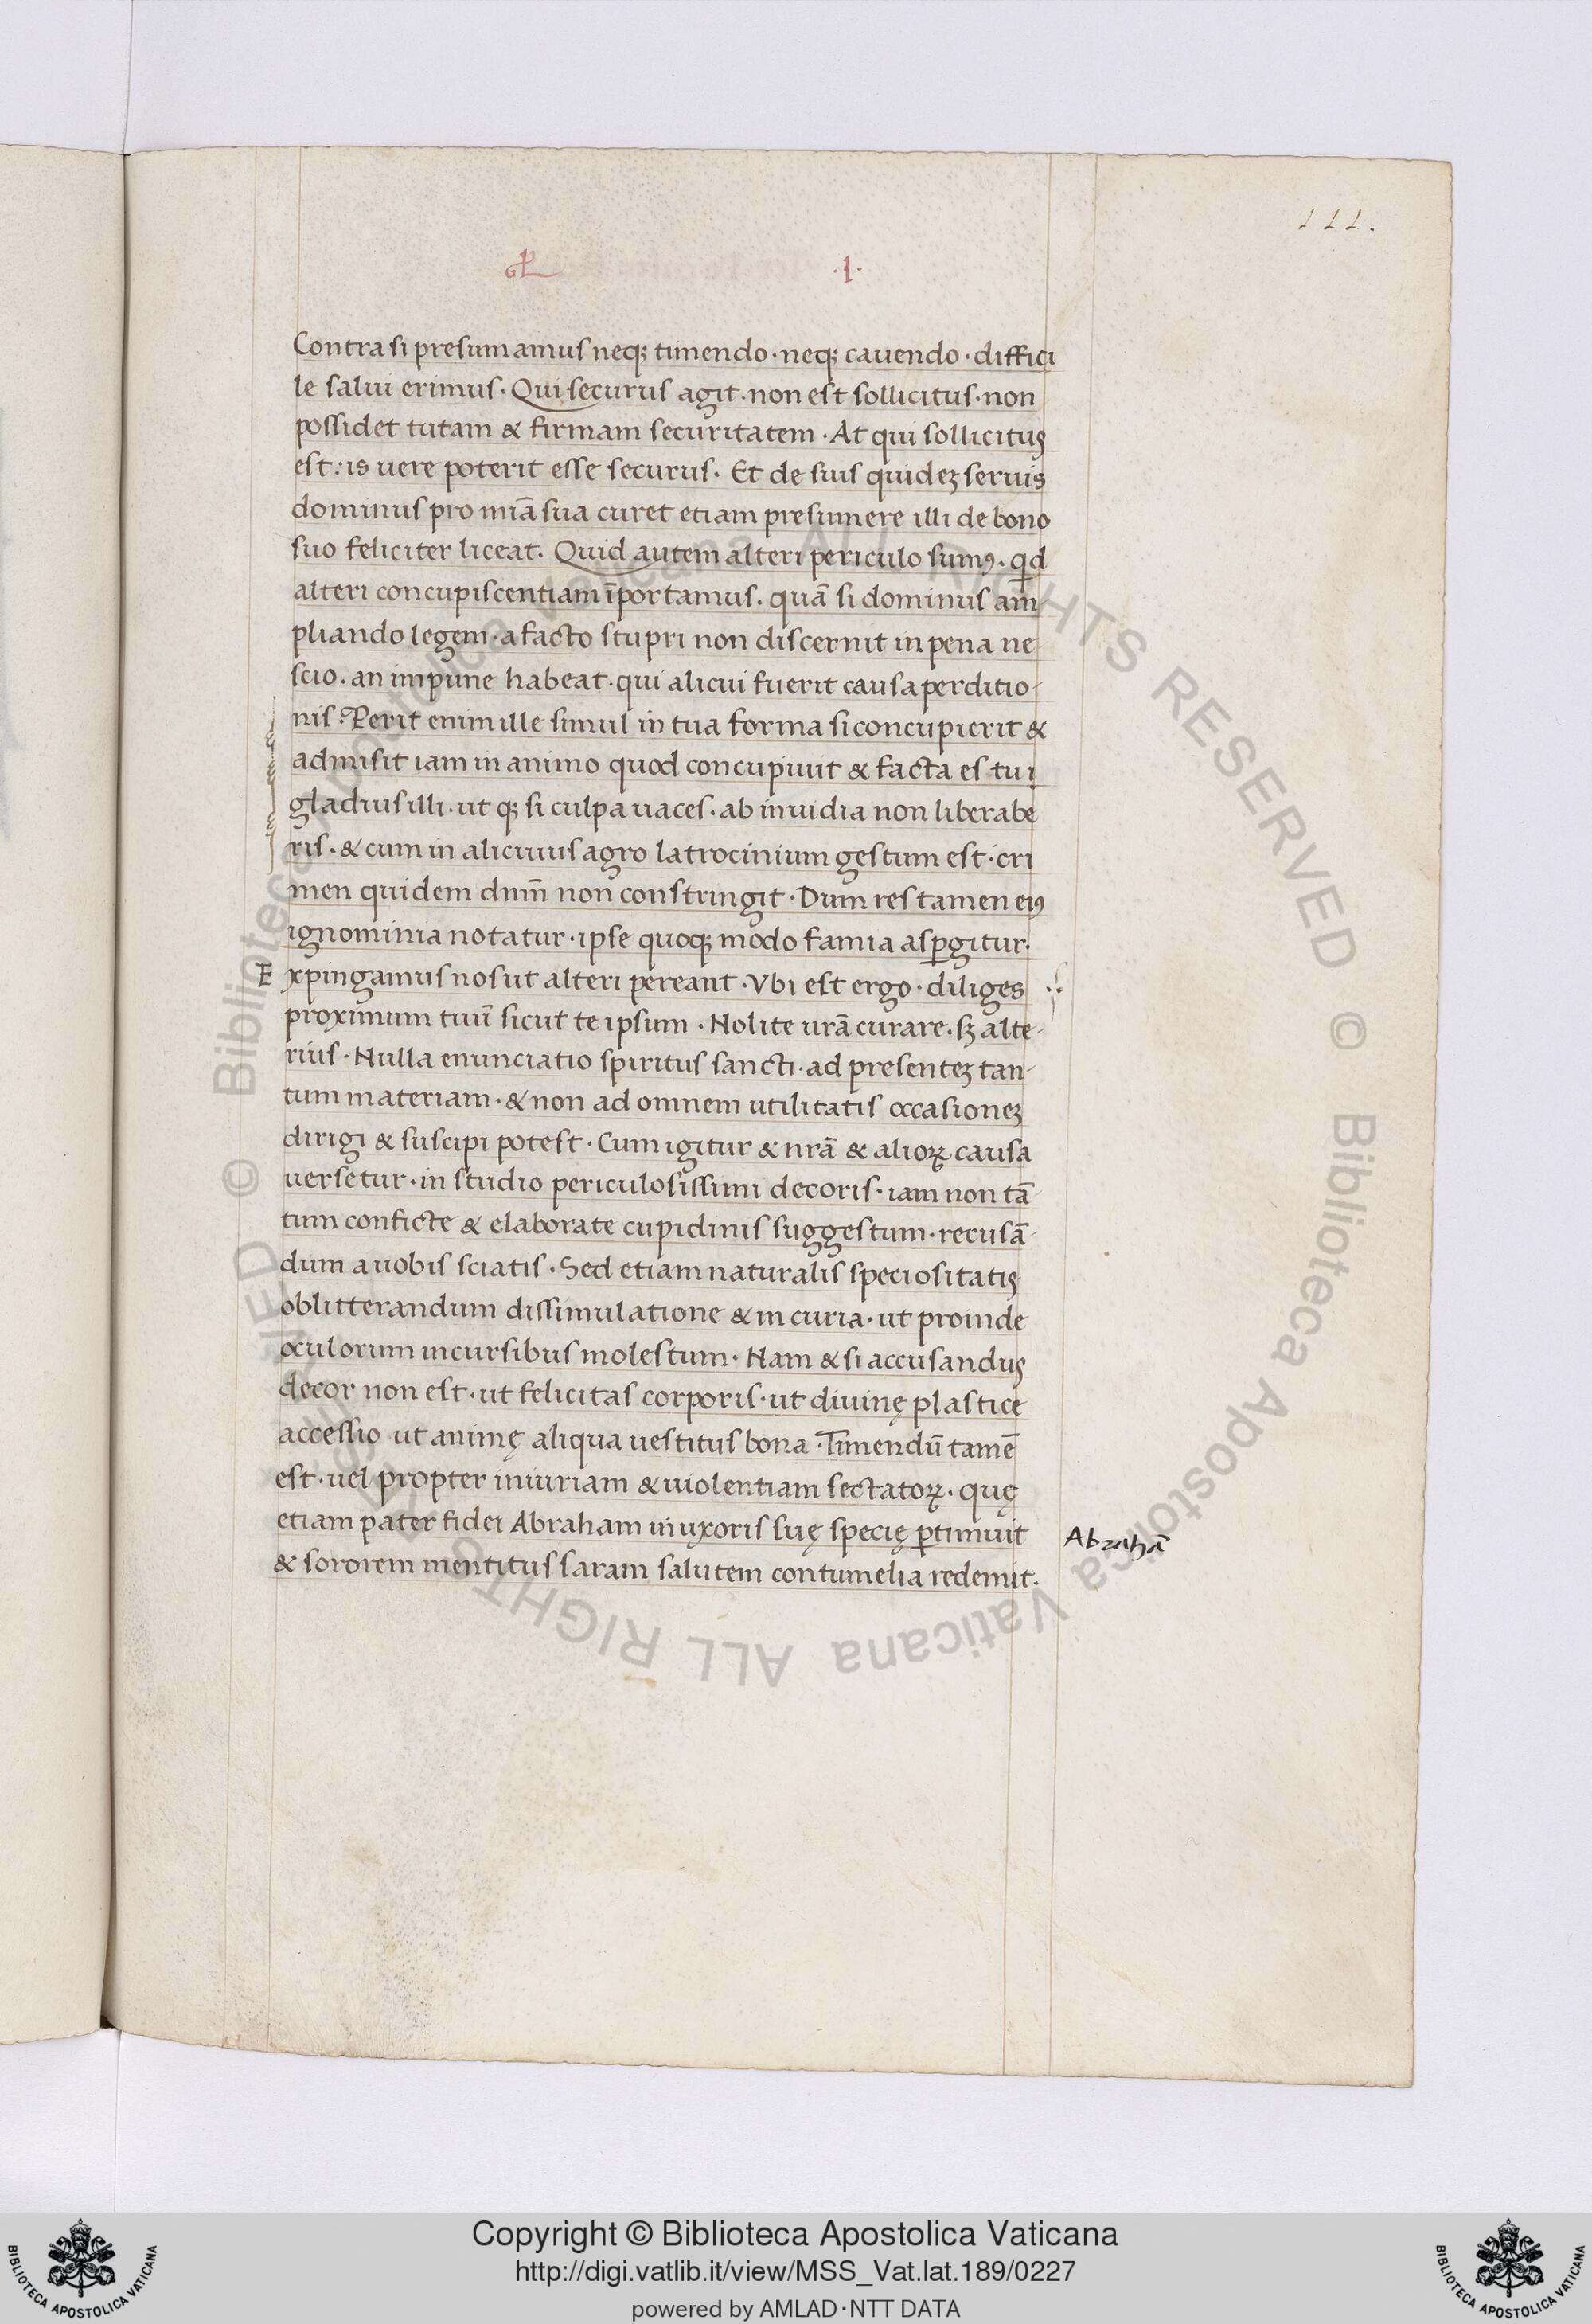 111.
·1·
Contra si presumamus neqꝫ timendo · neqꝫ cauendo · diffici
le salui erimus · Qui securus agit · non est sollicitus · non
possidet tutam & firmam securitatem · At qui sollicitus
est : is uere poterit esse securus · Et de suis quideꝫ seruis
dominus pro mĩa sua curet etiam presumere illi de bono
suo feliciter liceat · Quid autem alteri periculo sumꝰ · qͥd
alteri concupiscentiam ĩportamus · quã si dominus am-
pliando legem · a facto stupri non discernit in pena ne
scio · an impune habeat · qui alicui fuerit causa perditio-
nis · Perit enim ille simul in tua forma si concupierit &
admisit iam in animo quod concupiuit & facta es tu i
gladius illi · ut qꝫ si culpa uaces · ab inuidia non liberabe
ris · & cum in alicuius agro latrocinium gestum est · cri
men quidem dnm̃ non constringit · Dum res tamen eiꝰ
ignominia notatur · ipse quoqꝫ modo famia aspꝑgitur ·
E xpingamus nos ut alteri pereant · Vbi est ergo · diliges
proximum tuũ sicut te ipsum · Nolite ur̃a curare · sꝫ alte-
rius · Nulla enunciatio spiritus sancti · ad presenteꝫ tan-
tum materiam · & non ad omnem utilitatis occasioneꝫ
dirigi & suscipi potest · Cum igitur & nr̃a & alioꝝ causa
uersetur · in studio periculosissimi decoris · iam non tã-
tum conficte & elaborate cupidinis suggestum · recusã-
dum a uobis sciatis · Sed etiam naturalis speciositatis
oblitterandum dissimulatione & in curia · ut proinde
oculorum incursibus molestum · Nam & si accusandus
decor non est · ut felicitas corporis · ut diuinę plastice
accessio ut animę aliqua uestitus bona · Timendũ tamẽ
est · uel propter iniuriam & uiolentiam sectatoꝝ · quę
etiam pater fidei Abraham in uxoris suę specię ꝑtimuit
& sororem mentitus saram salutem contumelia redemit ·
Abrahã
Copyright © Biblioteca Apostolica Vaticana
http://digi.vatlib.it/view/MSS_Vat.lat.189/0227
powered by AMLAD·NTT DATA
BIBLIOTECA APOSTOLICA VATICANA
BIBLIOTECA APOSTOLICA VATICANA